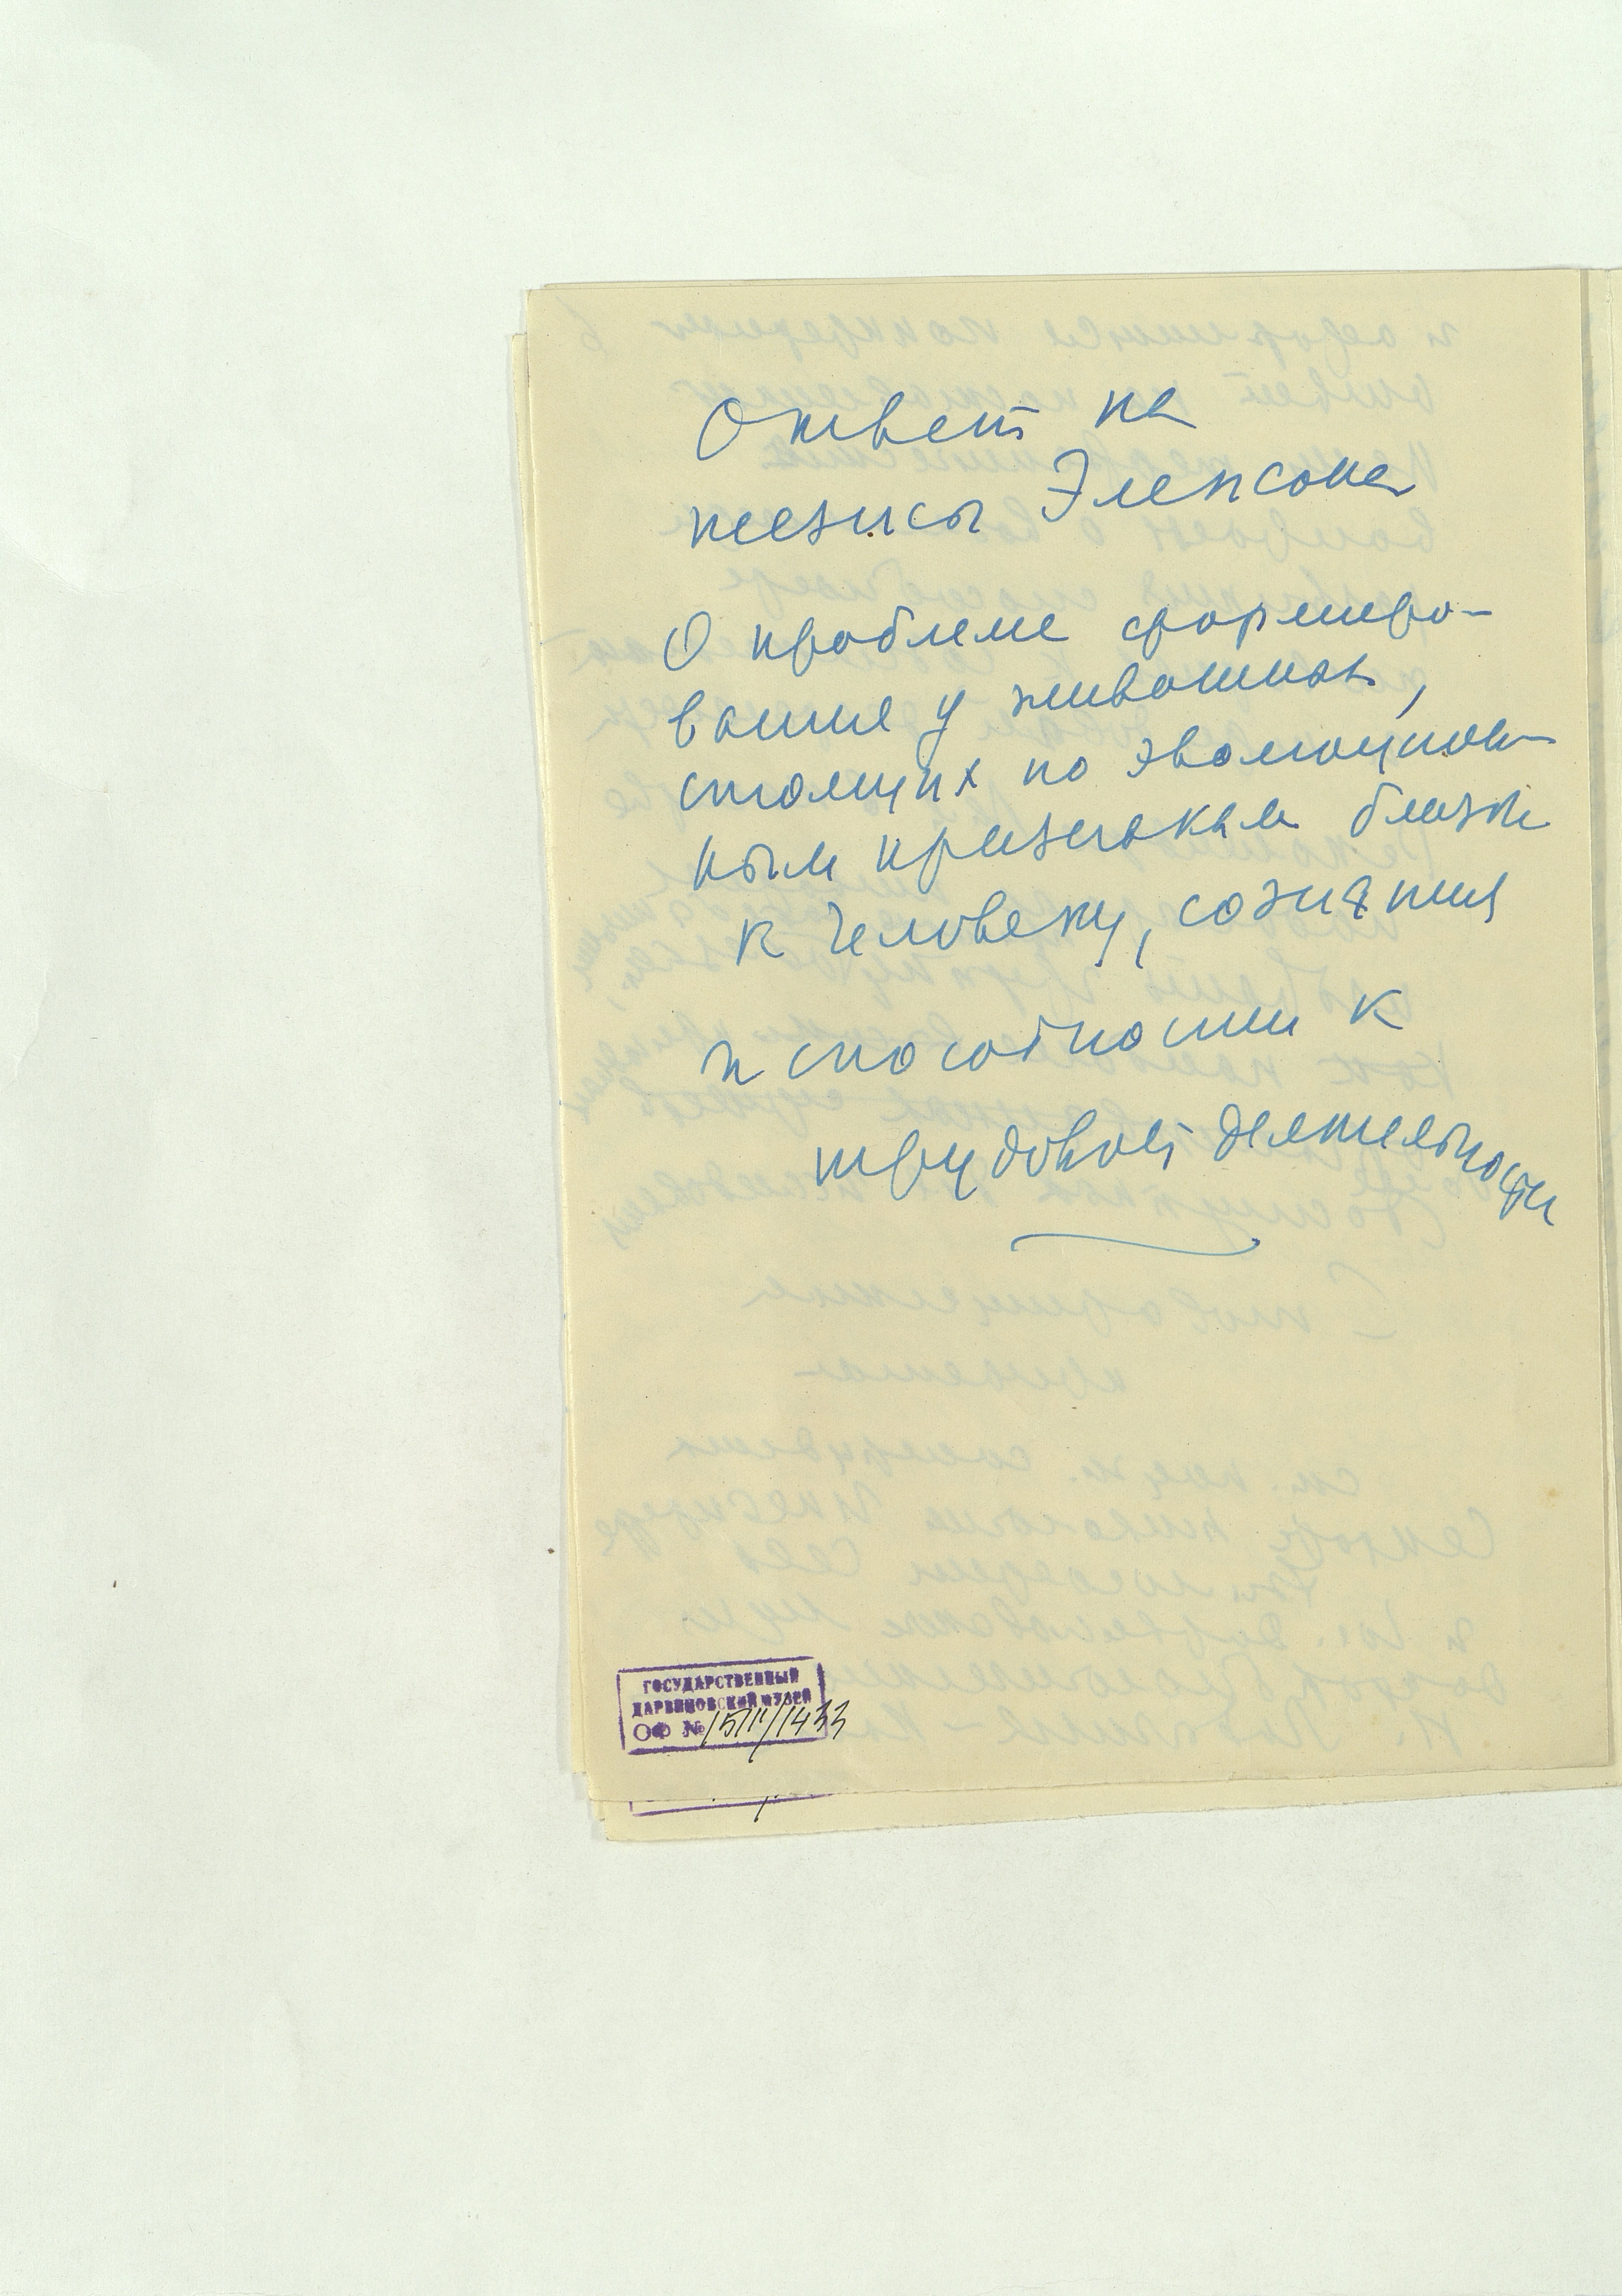 Ответ на
тезисы Элепсона
О проблеме формиро-
вания у животных,
стоящих по эволюцион-
ным признакам близко
к человеку, сознания
и способности к
трудовой деятельности
ГОСУДАРСТВЕННЫЙ
ДАРВИНОВСКИЙ МУЗЕЙ
ОФ №15111/1433